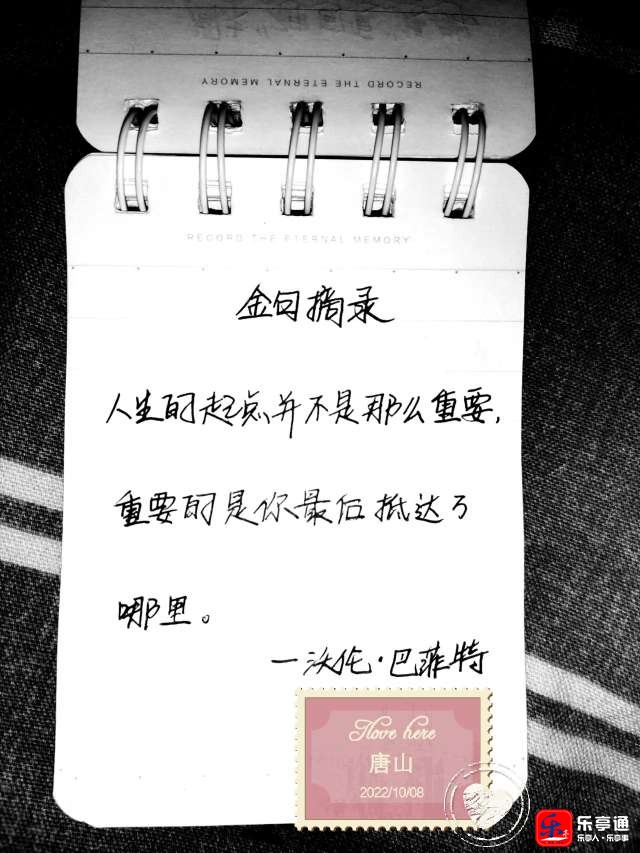 RECORD THE ETERNAL MEMORY
RECORD THE ETERNAL MEMORY
金句摘录
人生的起点并不是那么重要,
重要的是你最后抵达了
哪里。
—沃伦·巴菲特
I love here
唐山
2022/10/08
乐亭通
乐亭人·乐亭事